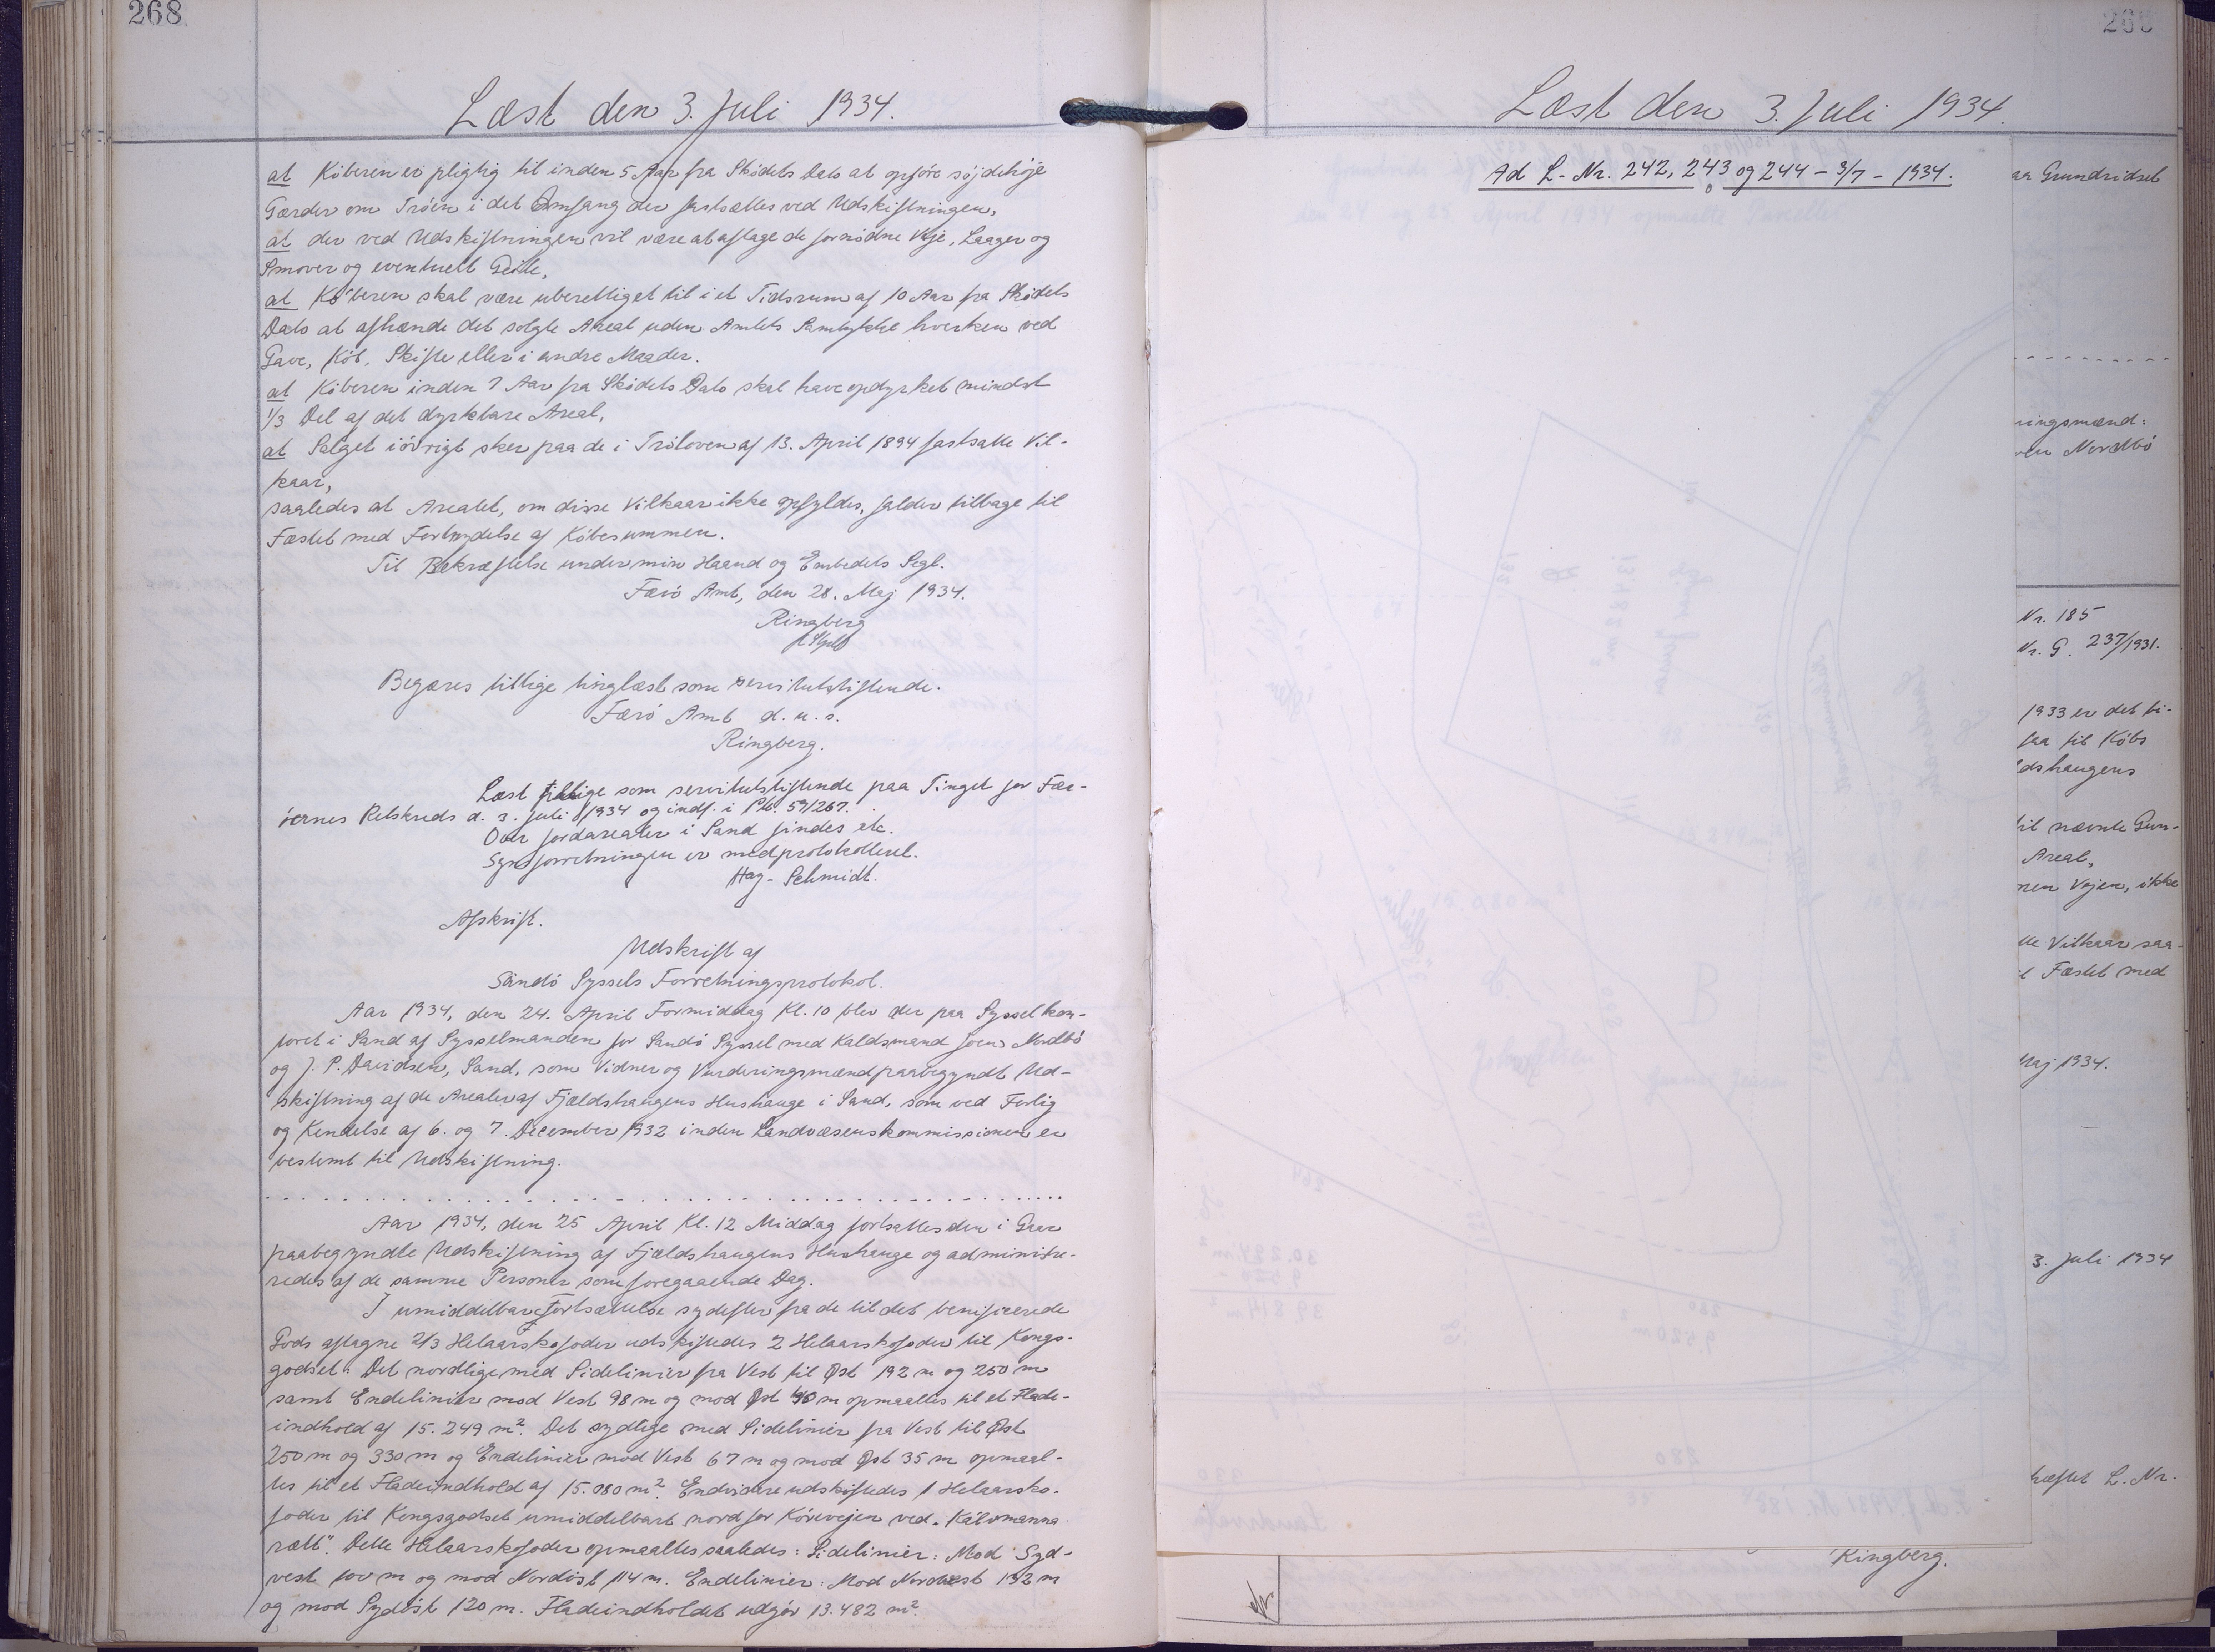 268
Læst den 3. Juli 1934.
at Köberen er pligtig til inden 5 Aar fra Sködets Dato at opföre söjdehöje
Gærder om Tröen i det Omfang der fastsættes ved Udskiftningen,
at der ved Udskiftningen vil være at aftage de fornödne Veje, Laager og
Smover og eventuelt Geile,
at Köberen skal være uberettiget til i et Tidsrum af 10 Aar fra Sködets
Dato at afhænde det solgte Areal uden Amtets Samtykke hverken ved
Gave, Köb, Skifte eller i andre Maader.
at Köberen inden 7 Aar fra Sködets Dato skal have opdyrket mindst
1/3 Del af det dyrkbare Areal,
at Salget iövrigt sker paa de i Tröloven af 13. April 1894 fastsatte Vil-
kaar,
saaledes at Arealet, om disse Vilkaar ikke opfyldes, falder tilbage til
Fæstet med Fortrydelse af Köbesummen.
Til Bekræftelse under min Haand og Embedets Segl.
Færö Amt, den 28. Maj 1934.
Ringberg
Begæres tillige tinglæst som servitutstiftende.
Færö Amt d. u. s.
Ringberg.
Læst tillige som servitutstiftende paa Tinget for Fær-
öernes Retskreds d. 3. Juli 1934 og indf. i Ptk. 59/267.
Over Jordarealer i Sand findes etc.
Synsforretningen er medprotokolleret.
Hag-Schmidt.
Afskrift.
Udskrift af
Sandö Syssels Forretningsprotokol.
Aar 1934, den 24. April Formiddag Kl. 10 blev der paa Sysselkon-
toret i Sand af Sysselmanden for Sandö Syssel med Kaldsmand Joen Nordbö
og J. P. Davidsen, Sand, som Vidner og Vurderingsmænd paabegyndt Ud-
skiftning af de Arealer af Fjældshaugens Hushauge i Sand, som ved Forlig
og Kendelse af 6. og 7. December 1932 inden Landvæsenskommissionen er
bestemt til Udskiftning.
Aar 1934, den 25 April Kl. 12 Middag fortsattes den i Gaar
paabegyndte Udskiftning af Fjældshaugens Hushauge og administre-
redes af de samme Personer som foregaaende Dag.
I umiddelbar Fortsættelse sydefter fra de til det benificerede
Gods aftagne 2/3 Helaarskofoder udskiftedes 2 Helaarskofoder til Kongs-
godset: Det nordlige med Sidelinier fra Vest til Øst 192 m og 250 m
samt Endelinier mod Vest 98 m og mod Øst 40 m opmaaltes til et Flade-
indhold af 15.249 m². Det sydlige med Sidelinier fra Vest til Øst
250 m og 330 m og Endelinier mod Vest 67 m og mod Øst 35 m opmaal-
tes til et Fladeindhold af 15.080 m². Endvidere udskiftedes 1 Helaarsko-
foder til Kongsgodset umiddelbart nord for Körevejen ved "Kálvmanna
rætt". Dette Helaarskofoder opmaaltes saaledes: Sidelinier: Mod Syd-
vest 100 m og mod Nordöst 114 m. Endelinier: Mod Nordvest 132 m
og mod Sydöst 120 m. Fladeindholdet udgör 13.482 m².
Læst den 3. Juli 1934.
Ad L-Nr. 242, 243 og 244 - 3/7 - 1934.
aa Grundridset
ringsmænd:
Nordbö
Nr. 185
Nr. G. 237/1931.
1933 er det ti-
saa til Köbs
dshaugens
til nævnte Gun-
Areal,
nen Vejen, ikke
te Vilkaar saa-
t Fæstet med
Maj 1934.
3. Juli 1934
hæftet L. Nr.
Ringberg.